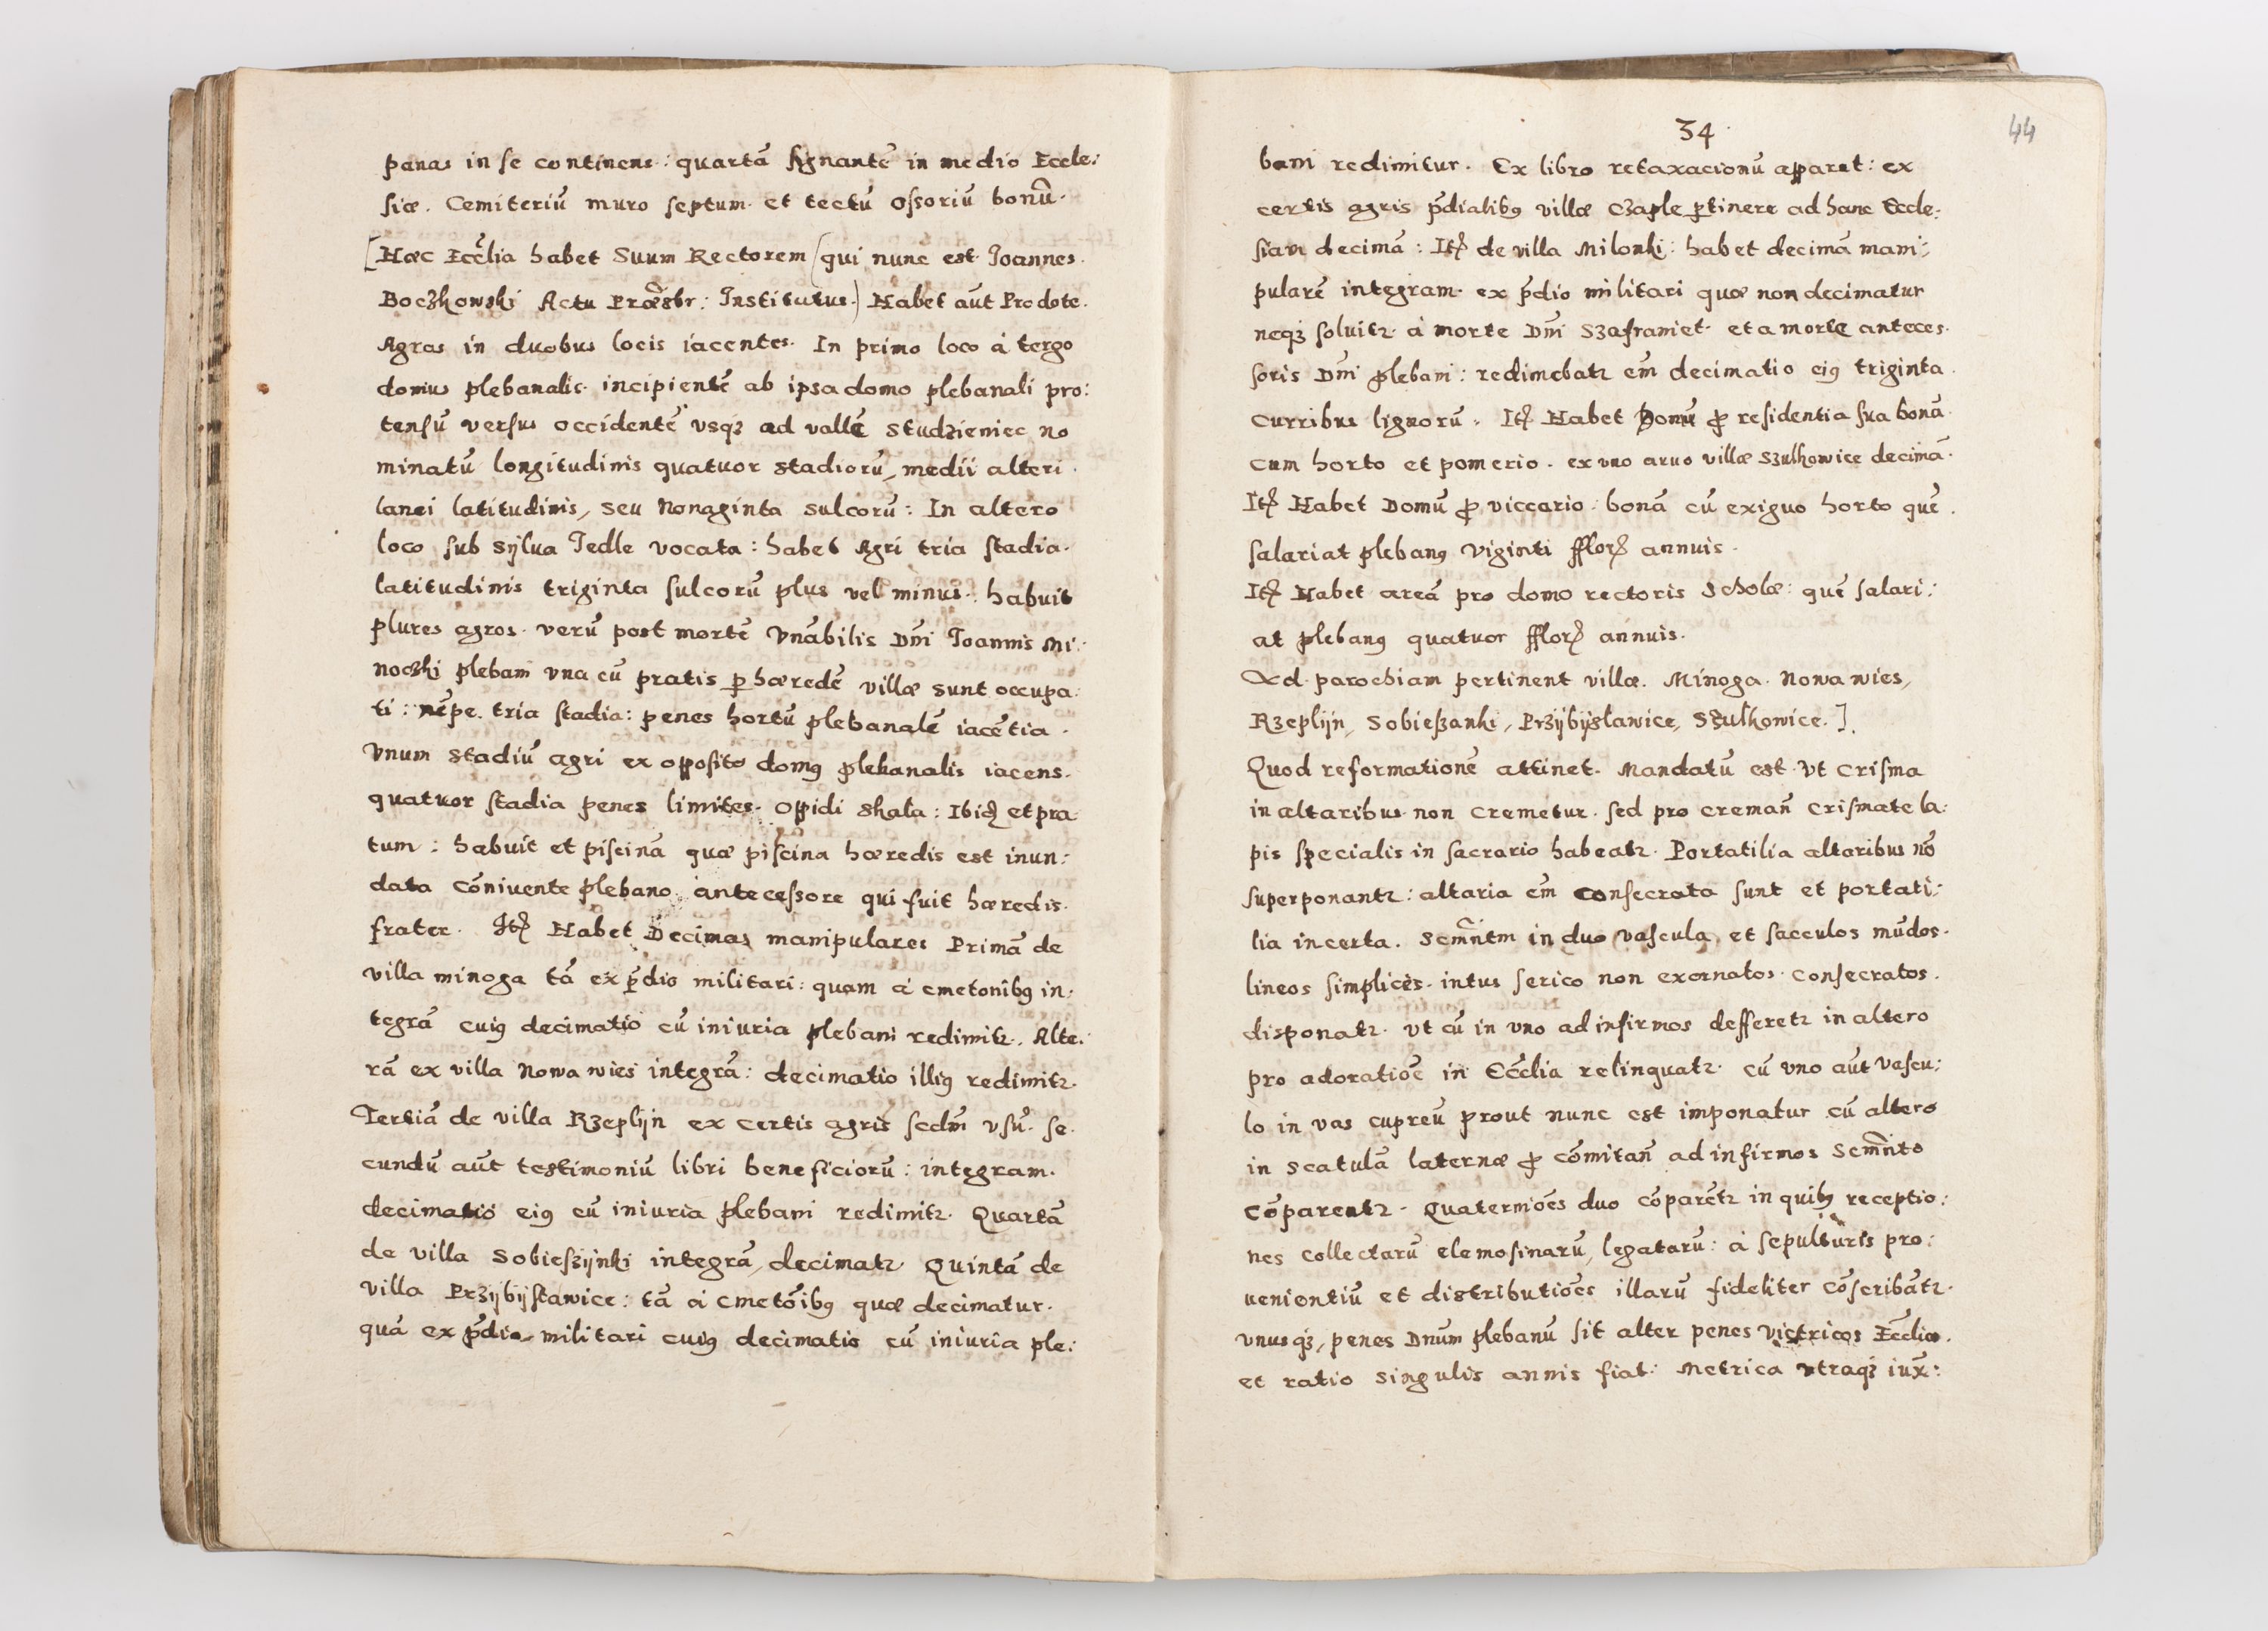 panas in se continens: quartã signantẽ in medio Eccle:
siæ. Cemiteriũ muro septum et tectũ ossoriũ bonũ.
[Hæc Eccl̃ia habet Suum Rectorem (qui nunc est Joannes
Boczkowski Actu Præsbr: Institutus.) Habet aũt Pro dote.
Agros in duobus locis iacentes. In primo loco à tergo
domus plebanalis incipientẽ ab ipsa domo plebanali pro:
tensũ versus occidentẽ vsqꝫ ad vallẽ Studzieniec no
minatũ longitudinis quatuor stadiorũ, medii alteri
lanei latitudinis, seu Nonaginta sulcorũ: In altero
loco sub sylua Jedle vocata: habet Agri tria stadia.
latitudinis triginta sulcorũ plus vel minus. habuit
plures agros. verũ post mortẽ Vnãbilis Dñi Joannis Mi:
noczki plebani vna cũ pratis ꝑ hæredẽ villæ sunt occupa
ti: nẽpe tria stadia: penes hortũ plebanalẽ iacẽtia.
Vnum stadiũ agri ex opposito domꝰ plebanalis iacens.
quatuor stadia penes limites oppidi Skala: Ibid̃ et pra
tum: habuit et piscinã quæ piscina hæredis est inun:
data cõniuente plebano antecessore qui fuit hæredis.
frater. Itꝫ Habet Decimas manipulares Primã de
villa minoga tã ex p̃dio militari: quam à cmetonibꝰ in:
tegrã cuiꝰ decimatio cũ iniuria plebani redimitꝛ. Alte:
rã ex villa Nowa wies integrã: decimatio illiꝰ redimitꝛ.
Tertiã de villa Rzeplijn ex certis agris scdm̃ vsũ. se
cundũ aũt testimoniũ libri beneficiorũ: integram.
decimatio eiꝰ cũ iniuria plebani redimitꝛ. Quartã
de villa Sobieszijnki integrã, decimatꝛ. Quintã de
villa Przijbijslawice: tã à cmetõibꝰ quæ decimatur.
quã ex p̃dio militari cuiꝰ decimatio cũ iniuria ple:
34
44
bani redimitur. Ex libro retaxacionũ apparet: ex
certis agris p̃dialibꝰ villæ Czaple ꝑtinere ad hanc Eccle:
siam decimã: Itꝫ de villa Milonki: habet decimã mani:
pularẽ integram ex p̃dio militari quæ non decimatur
neqꝫ soluitꝛ à morte Dñi Szafraniet et a morte anteces
soris Dñi plebani: redimebatꝛ em̃ decimatio eiꝰ triginta
curribus lignorũ. Itꝫ Habet Domũ ꝓ residentia sua bonã
cum horto et pomerio. ex vno aruo villæ Szulkowice decimã.
Itꝫ Habet Domũ ꝓ viccario bonã cũ exiguo horto quẽ
salariat plebanꝰ viginti fflorꝫ annuis.
Itꝫ Habet areã pro domo rectoris Scholæ: quẽ salari:
at plebanꝰ quatuor fflorꝫ annuis.
Ad parochiam pertinent villæ. Minoga. Nowa wies,
Rzeplijn, Sobieszanki, Przijbijslawice, Szulkowice.].
Quod reformationẽ attinet. Mandatũ est vt crisma
in altaribus non cremetur. sed pro cremañ crismate la:
pis specialis in sacrario habeatꝛ. Portatilia altaribus nõ
superponantꝛ: altaria em̃ consecrata sunt et portati:
lia incerta. Scm̃ntm in duo vascula et sacculos mũdos
lineos simplices intus serico non exornatos consecratos.
disponatꝛ. vt cũ in vno ad infirmos defferetꝛ in altero
pro adoratiõe in Eccl̃ia relinquatꝛ. cũ vno aũt vascu:
lo in vas cupreũ prout nunc est imponatur cũ altero
in scatulã laternæ ꝓ cõmitañ ad infirmos Scm̃nto
cõparentꝛ. Quaterniões duo cõparẽtꝛ in quibꝰ receptio:
nes collectarũ elemosinarũ, legatarũ: à sepulturis pro:
uenientiũ et distributiões illarũ fideliter cõscribãtꝛ.
vnusqꝫ, penes Dnũm plebanũ sit alter penes victricos Eccl̃iæ.
et ratio singulis annis fiat: Metrica vtraqꝫ iux̃: